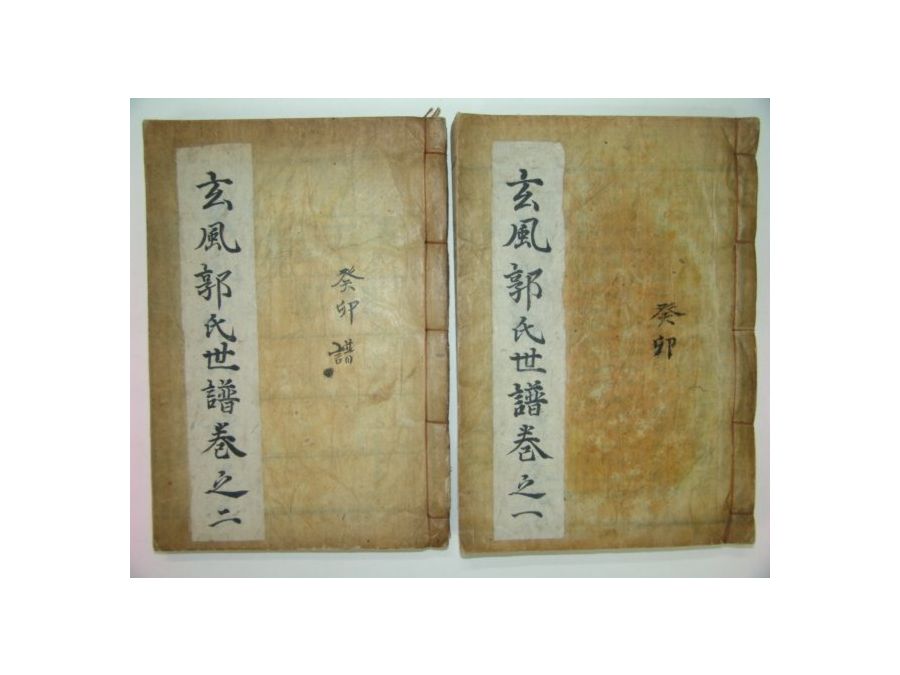 玄風郭氏世譜卷之一
癸卯
玄風郭氏世譜卷之二
癸卯譜